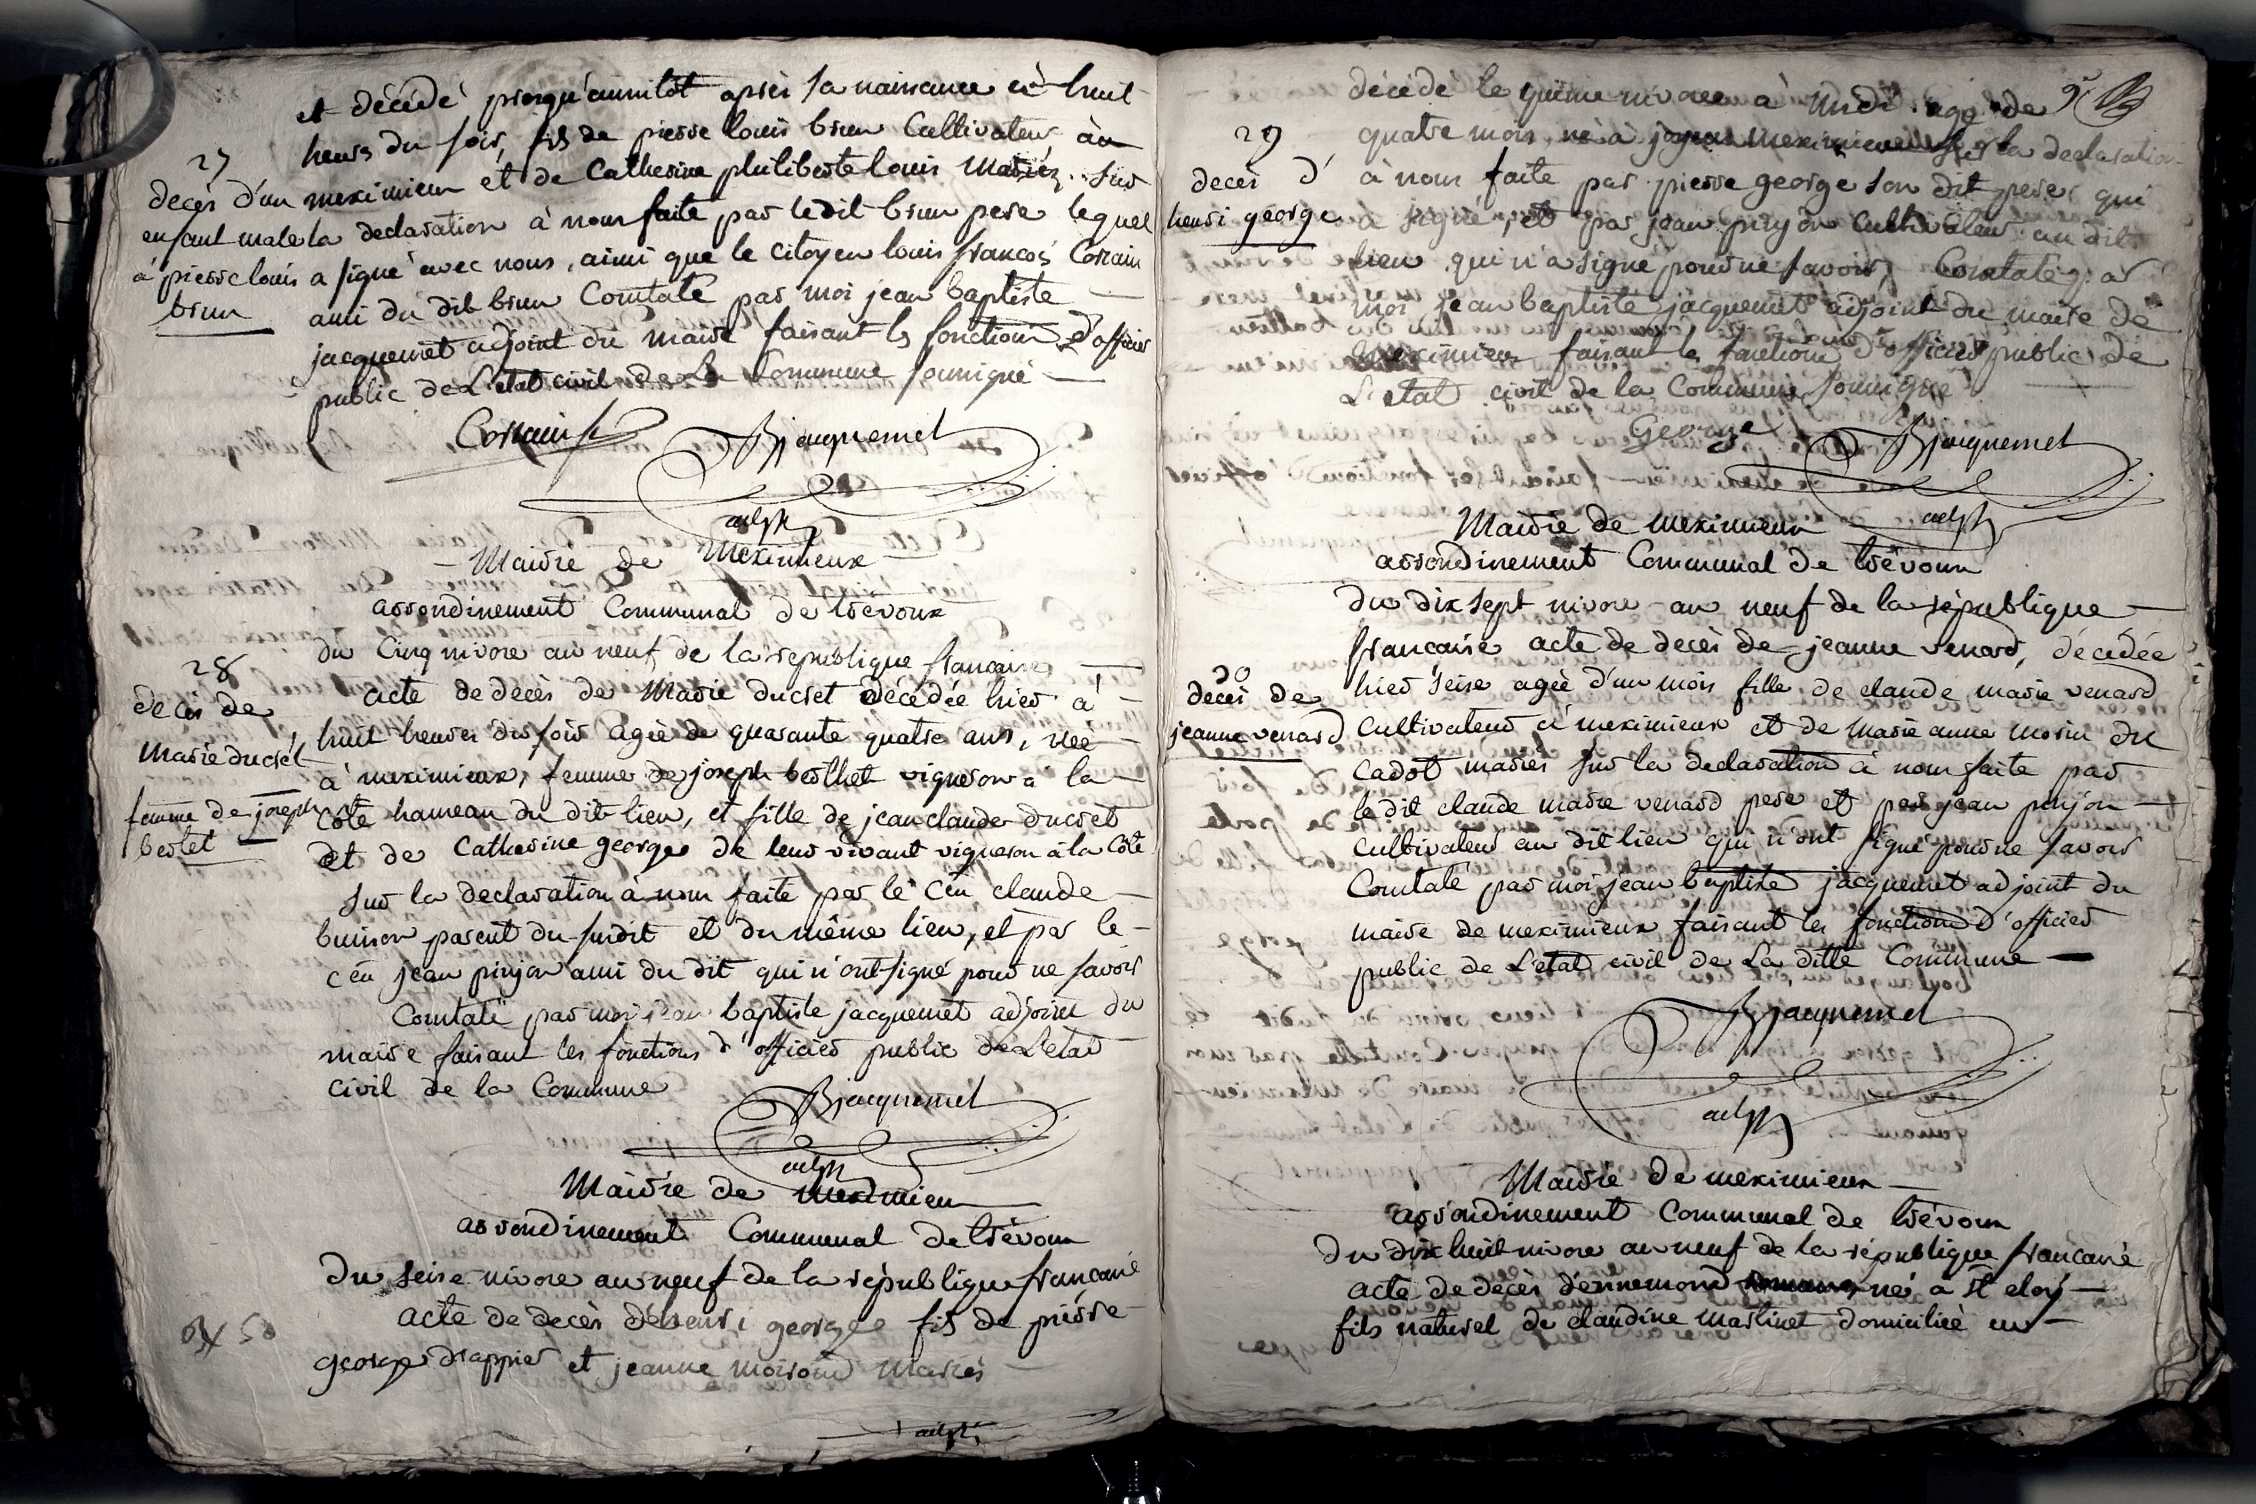 et décédé presqu'aussitôt après sa naissance à huit
heurs du soir, fils de pierre louis brun Cultivateur au
27
decès d'un
enfant male
a pierre louis
brun
meximieu et de Catherine philiberte louis Mariés. Sur
la declaration à nous faite par ledit brun pere lequel
a signé avec nous, ainsi que le citoyen louis françois Corrain
ami du dit brun Constaté par moi jean baptiste
jacquemet adjoint du maire faisant les fonctions d'officier
public de L'etat civil de la Commune soussigné
Corrain
Bjacquemet
adjt
Mairie de Meximieux
arrondinement Communal de trévoux
du Cinq nivose an neuf de la republique francaise
28
decès de
Marie ducret
femme de joseph
bertet
acte de decès de Marie ducret décédée hier à
huit heures du soir agée de quarante quatre ans, née
à meximieux, femme de joseph berthet vigneron a la
côte hameau du dit lieu, et fille de jean claude ducret
et de Catherine george de leur vivant vigneron à la Côte
Sur la declaration à nous faite par le cen claude
buisson parent du susdit et du même lieu, et par le
cen jean pinjon ami du dit qui n'ont signé pour ne savoir
Constaté par moi jean baptiste jacquemet adjoint du
maire faisant les fonctions d'officier public de L'etat
civil de la Commune
Bjacquemet
adjt
Mairie de meximieu
arrondinement Communal de trévoux
du seise nivose an neuf de la république francaise
acte de decès d'henri george fils de pierre
george drappier et jeanne moiroud Mariés
adjt
décédé le quinse nivose à midi agé de
quatre mois, né à meximieux sur la declaration
29
decès d'
henri george
à nous faite par pierre george son dit pere qui
a signé, et par jean pinjon cultivateur au dit
lieu qui n'a signé pour ne savoir, Constaté par
moi jean baptiste jacquemet adjoint du maire de
meximieux faisant les fonctions d'officier public de
L'etat civil de la Commune soussigné
George
Bjacquemet
adjt
Mairie de meximieux
arrondinement Communal de trévoux
du dix sept nivose an neuf de la république
francaise acte de decès de jeanne venard, décédée
30
decès de
jeanne venard
hier seise agée d'un mois fille de claude marie venard
cultivateur à meximieux et de marie anne morin du
cadot mariés sur la declaration à nous faite par
le dit claude marie venard pere et par jean pinjon
cultivateur au dit lieu qui n'ont signé pour ne savoir
Constaté par moi jean baptiste jacquemet adjoint du
maire de meximieux faisant les fonctions d'officier
public de L'etat civil de La ditte Commune
Bjacquemet
adjt
Mairie de meximieux
arrondinement Communal de trévoux
du dix huit nivose an neuf de la république francaise
acte de decès d'ennemond né a St eloy
fils naturel de claudine martinet domiciliée en